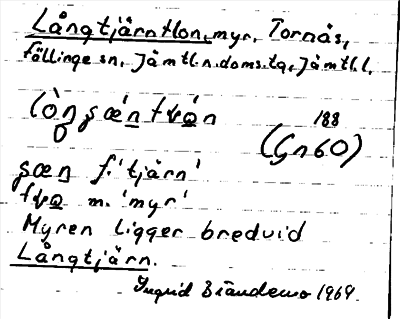 Långtjärnflon, myr, Tornäs,
Föllinge sn, Jämtl.n.doms.tg, Jämtl.l.
188
(Gn60)
f. 'tjärn'
m. 'myr'
Myren ligger bredvid
Långtjärn.
Ingrid 1969.